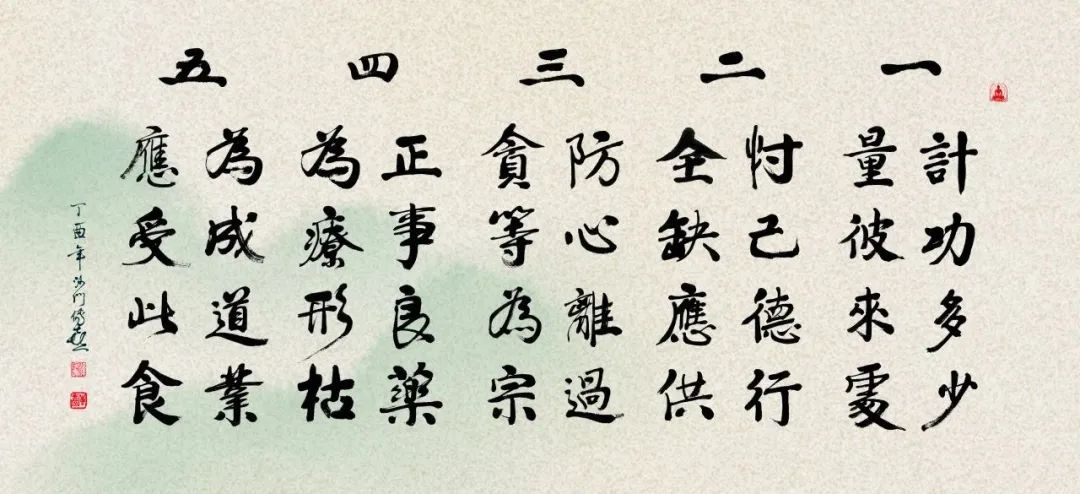 一
計功多少
量彼來處
二
忖己德行
全缺應供
三
防心離過
貪等為宗
四
正事良藥
為療形枯
五
為成道業
應受此食
丁酉年沙门